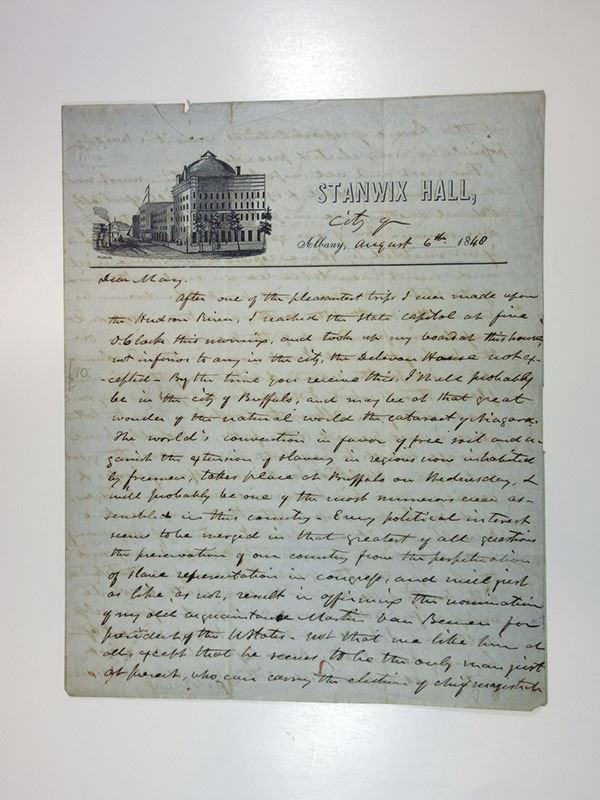 STANWIX HALL,
City of
Albany, August 6th 1848
Dear Mary.
After one of the pleasantest trips I ever made upon
the Hudson River, I reached the State capitol at five
O Clock this morning, and took up my board at this house,
not inferior to any in the city, the Delavan House not ex-
-cepted - By the time you receive this, I shall probably
be in the city of Buffalo, and may be at that great
wonder of the natural world the cataract of Niagara.
The world's convention in favor of free soil and a-
gainst the extension of slavery in regions now inhabited
by freemen, takes place at Buffalo on Wednesday, &
will probably be one of the most numerous ever as-
sembled in this country - Every political interest
seems to be merged in that greatest of all questions
the preservation of our country from the perpetuation
of slave representation in congress, and will just
as like as not, result in affirming the nomination
of my old acquaintance Martin Van Beuren for
president of the UStates - not that we like him at
all, except that he seems to be the only man just
at present, who can carry the election of chief magistrate
10